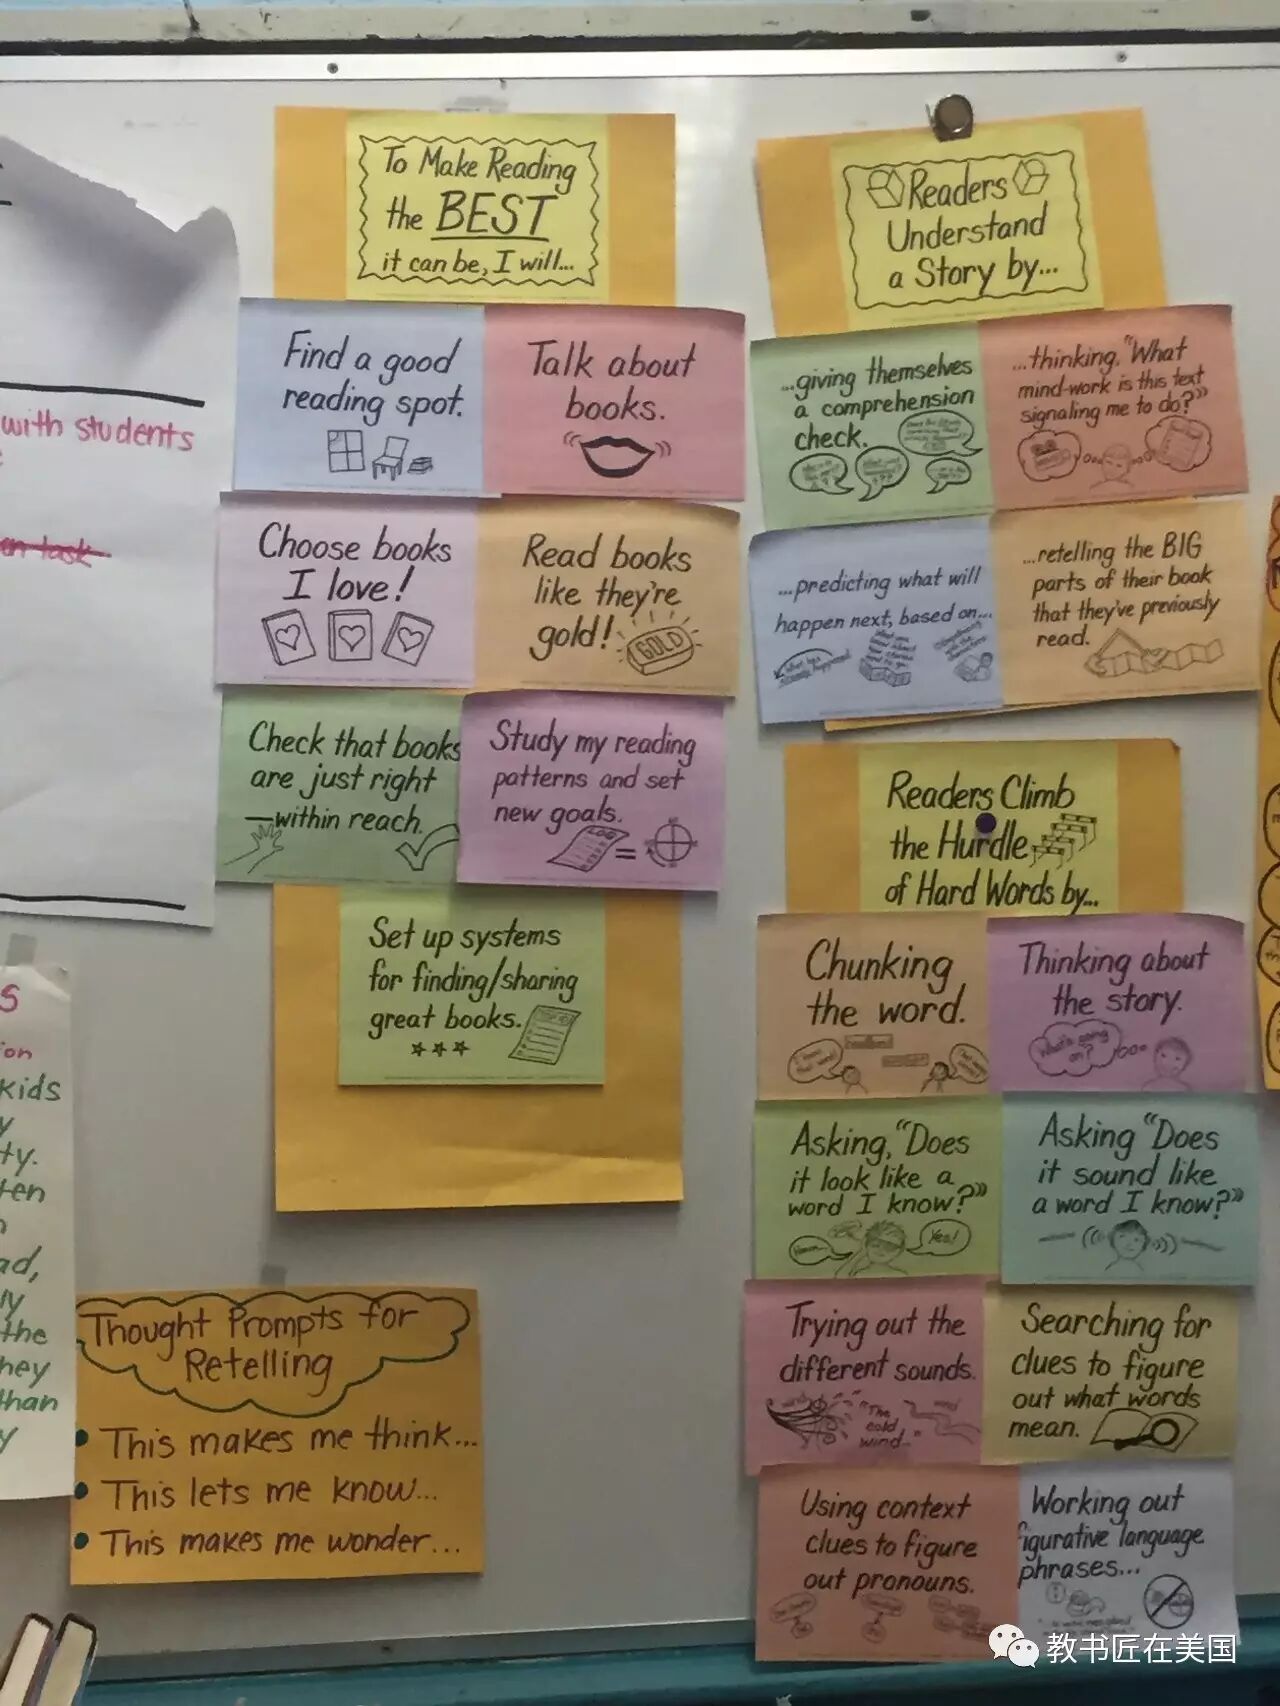 To Make Reading
the BEST
it can be, I will...
Find a good
reading spot.
Talk about
books.
Choose books
I love!
Read books
like they're
gold!
GOLD
Check that books
are just right
—within reach.
Study my reading
patterns and set
new goals.
LOG
=
Set up systems
for finding/sharing
great books.
Readers
Understand
a Story by...
...giving themselves
a comprehension
check.
...thinking, "What
mind-work is this text
signaling me to do?"
...predicting what will
happen next, based on...
...retelling the BIG
parts of their book
that they've previously
read.
Readers Climb
the Hurdle
of Hard Words by...
Chunking
the word.
Thinking about
the story.
What's going
on?
Asking, "Does
it look like a
word I know?"
Hmm...
Yes!
Asking "Does
it sound like
a word I know?"
Trying out the
different sounds.
"The
cold
wind..."
Searching for
clues to figure
out what words
mean.
Using context
clues to figure
out pronouns.
Working out
figurative language
phrases...
Thought Prompts for
Retelling
This makes me think...
This lets me know...
This makes me wonder...
with students
on task
kids
ty.
the
than
教书匠在美国